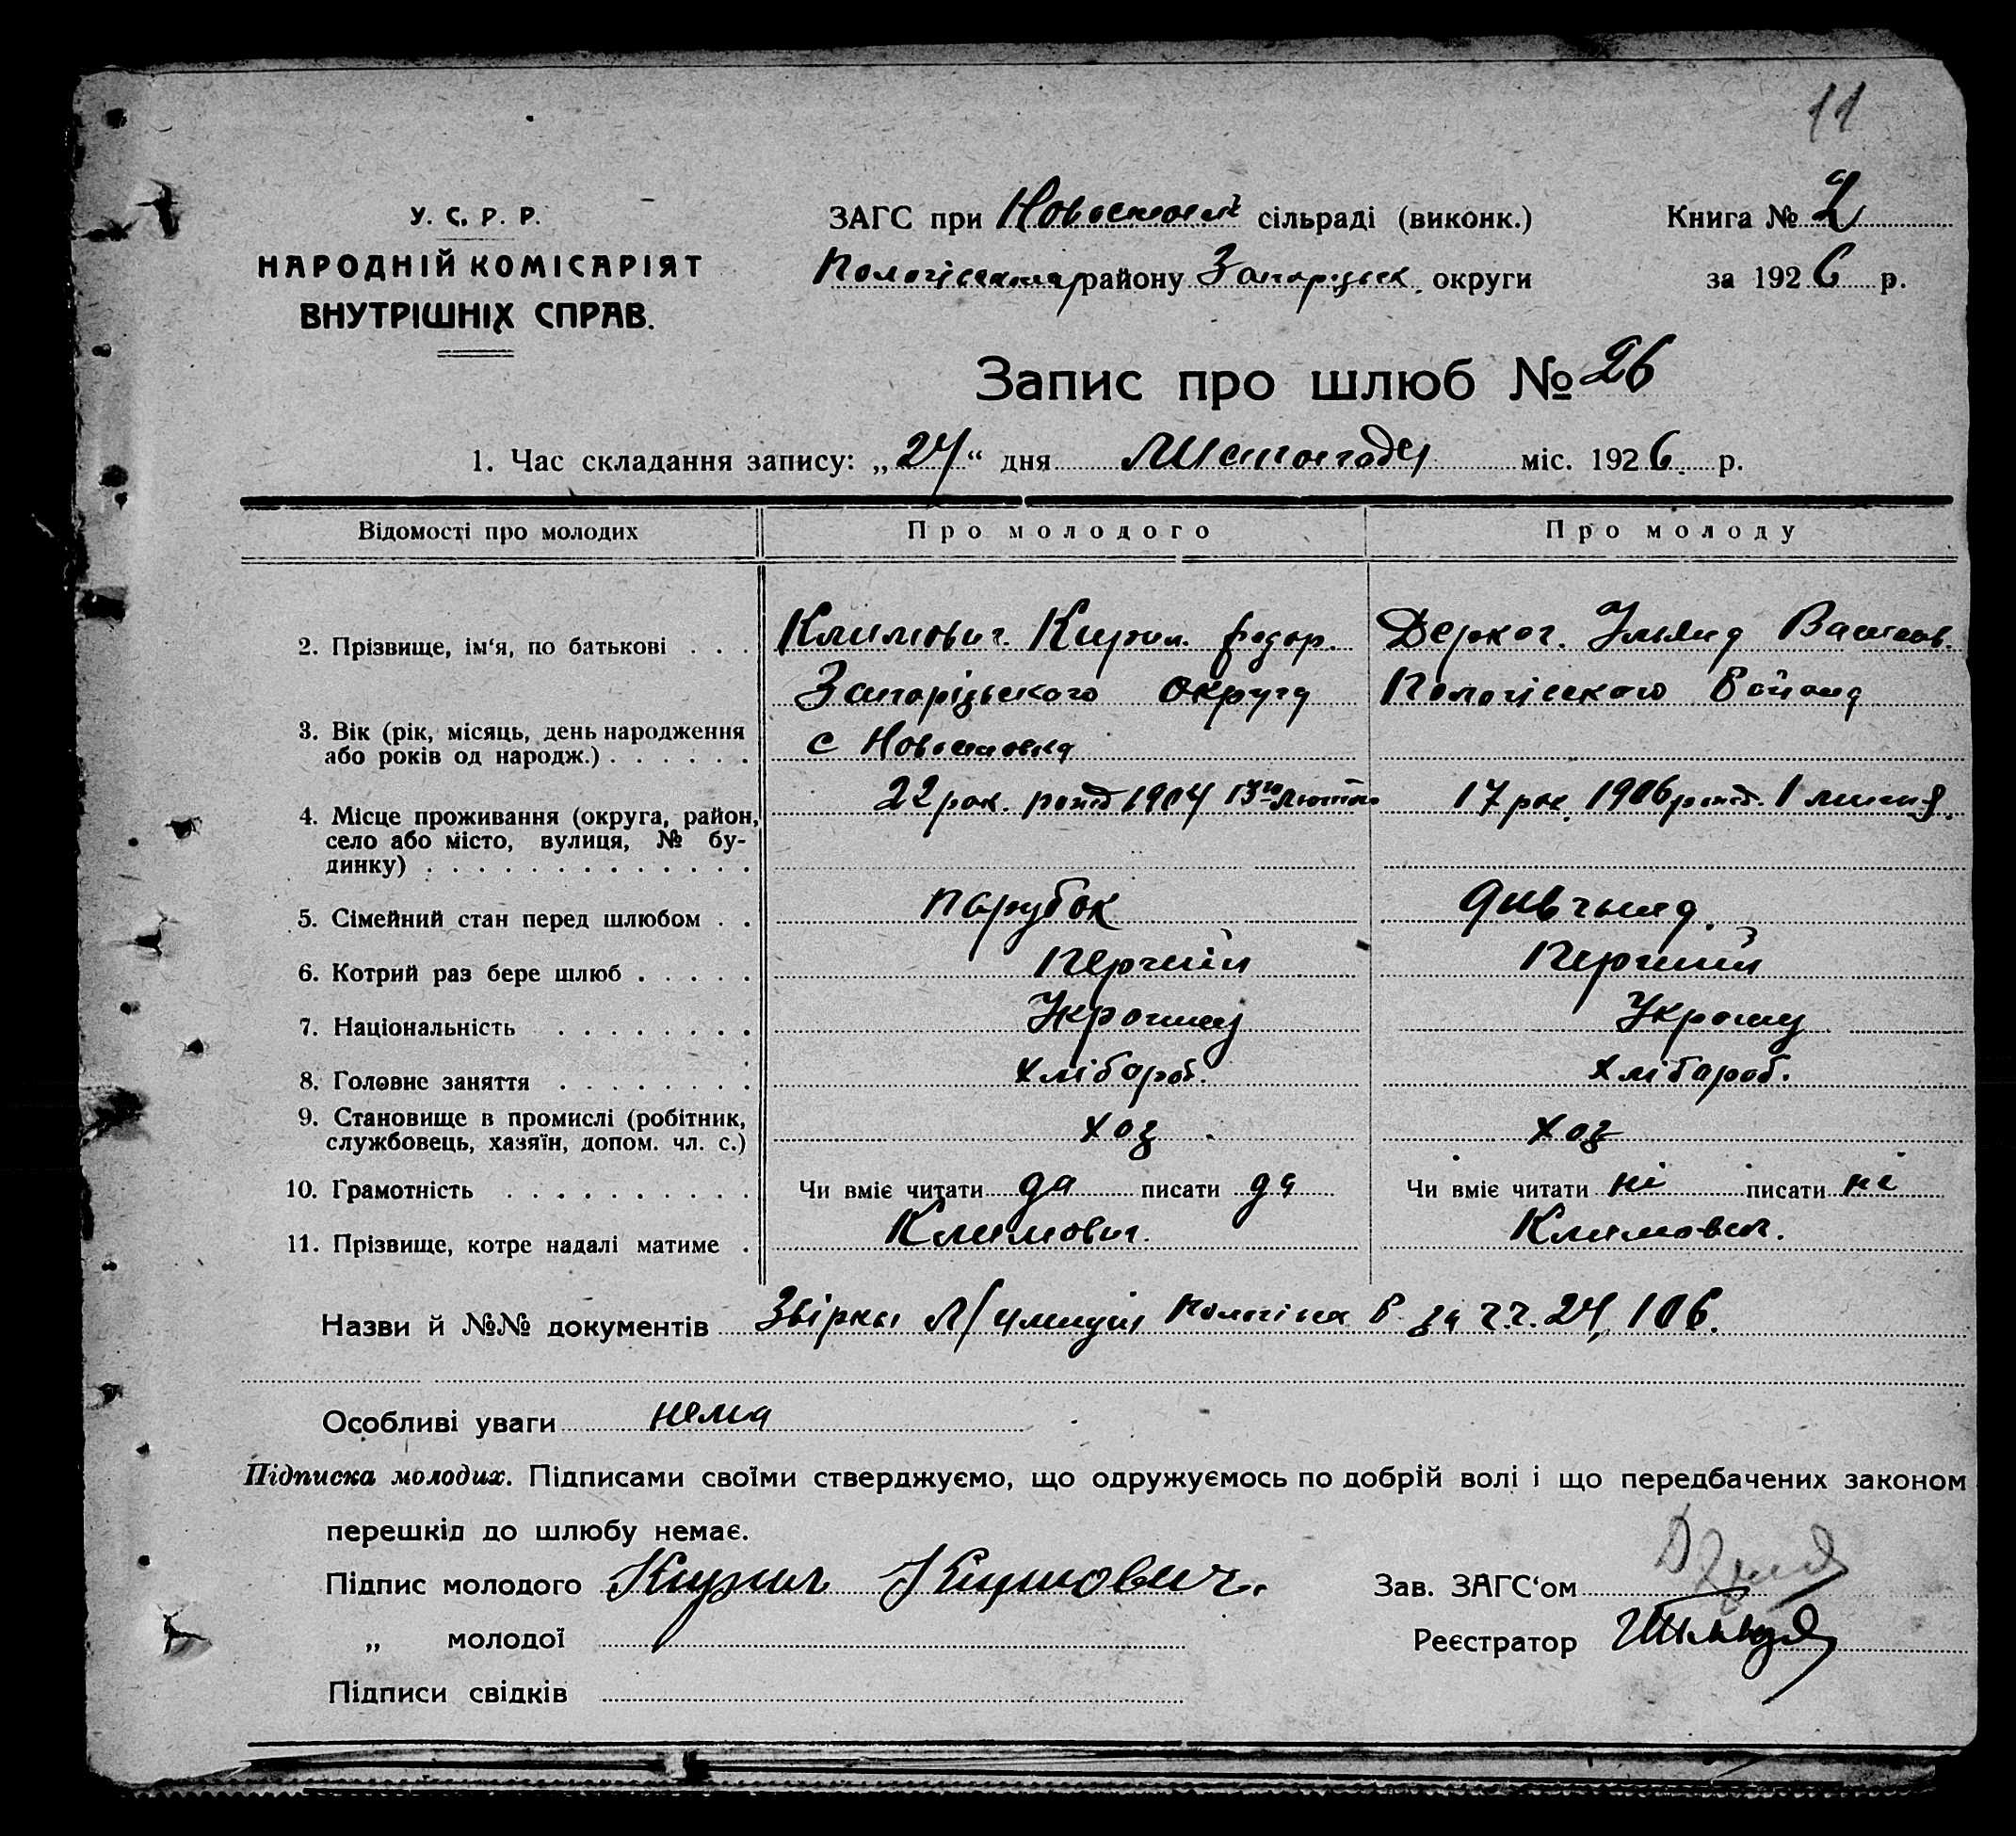 11
У. С. Р. Р.
НАРОДНІЙ КОМІСАРІЯТ
ВНУТРІШНІХ СПРАВ.
ЗАГС при сільраді (виконк.)
району Запорізьк. округи
Книга № 2
за 1926 р.
Запис про шлюб № 26
1. Час складання запису: „24“ дня Листопада міс. 1926. р.
Відомості про молодих Про молодого Про молоду
2. Прізвище, ім‘я, по батькові . . . Климович. Кирил. Федор. Деркач. Василів.
Запорізького округу
3. Вік (рік, місяць, день народження
або років од народж.) . . . . . . с Новоселовка
22 рок. рожд 1904 13го лютого 17 рок. 1906 рожд. 1
4. Місце проживання (округа, район,
село або місто, вулиця, № бу-
динку) . . . . . . . . . . . . .
5. Сімейний стан перед шлюбом . . парубок дивчына.
6. Котрий раз бере шлюб . . . . . Перший Перший
7. Національність . . . . . . . .
8. Головне заняття . . . . . . . . хлібороб. хлібороб.
9. Становище в промислі (робітник,
службовець, хазяїн, допом. чл. с.) хоз хоз
10. Грамотність . . . . . . . . . . Чи вміє читати да писати да Чи вміє читати ні писати ні
11. Прізвище, котре надалі матиме . Климович. Климович.
Назви й №№ документів за ч.ч. 24, 106.
Особливі уваги нема
Підписка молодих. Підписами своїми стверджуємо, що одружуємось по добрій волі і що передбачених законом
перешкід до шлюбу немає.
Підпис молодого Кирил Климович.
Зав. ЗАГС‘ом
„ молодої
Реєстратор
Підписи свідків